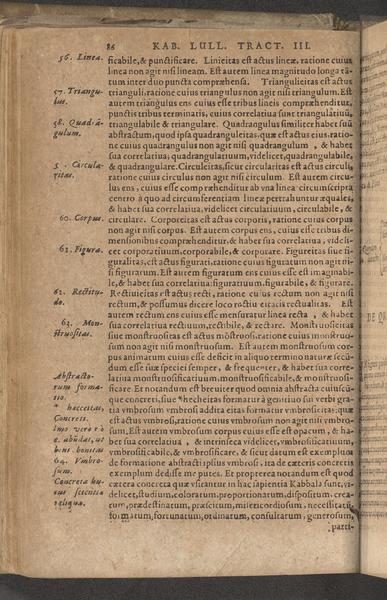 86 KAB. LULL. TRACT. III.
56. Linea.
ficabile, & punctificare. Lineitas est actus lineæ, ratione cuius
linea non agit nisi lineam. Est autem linea magnitudo longa tã-
tum inter duo puncta compræhensa. Triangulieitas est actus
57. Triangu-
lus.
trianguli, ratione cuius triangulus non agit nisi triangulum. Est
autem triangulus ens cuius esse tribus lineis compræhenditur,
punctis tribus terminatis, cuius correlatiua sunt triangulatiuũ,
58. Quadrã-
gulum.
triangulabile & triangulare. Quadrangulus similiter habet suũ
abstractum, quod ipsa quadranguleitas, quæ est actus eius, ratio-
ne cuius quadrangulus non agit nisi quadrangulum, & habet
sua correlatiua; quadrangulatiuum, videlicet, quadrangulabile,
5 . Circula-
ritas.
& quadrangulare. Circulcitas, sicut circularitas est actus circuli,
ratione cuius circulus non agit nisi circulum. Est autem circu-
lus ens, cuius esse compræhenditur ab vna linea circumscripta
centro à quo ad circumferentiam lineæ pertrahuntur æquales,
& habet sua correlatiua, videlicet circulatiuum, circulabile, &
60. Corpus.
circulare. Corporeitas est actus corporis, ratione cuius corpus
non agit nisi corpus. Est autem corpus ens, cuius esse tribus di-
mensionibus compræhenditur, & habet sua correlatiua, videli-
61. Figura.
cet corporatiuum, corporabile, & corporare. Figureitas siue fi-
guralitas, est actus figurati, ratione cuius figuratum non agit ni-
si figuratum. Est autem figuratum ens cuius esse est imaginabi-
le, & habet sua correlatiua: figuratiuum, figurabile, & figurare.
62. Rectitu-
do.
Rectiueitas est actus recti, ratione cuius rectum non agit nisi
rectum, & possumus dicere loco rectiueitatis rectualitas. Est
autem rectum ens cuius esse mensuratur linea recta, & habet
63. Mon-
struositas.
sua correlatiua rectiuum, rectibile, & rectare. Monstruoseitas
siue monstruositas est actus mõstruosi, ratione cuius monstruo-
sum non agit nisi monstruosum. Est autem monstruosum cor-
pus animatum cuius esse deficit in aliquo termino naturæ secũ-
dum esse suæ speciei semper, & frequenter, & habet sua corre-
Abstracto-
rum forma-
tio.
latiua monstruosificatiuum, monstruosificabile, & monstruosi-
ficare. Et notandum est breuiter quod omnia abstracta cuiuscũ-
* hæcceitas,
Concreti.
que concreti, siue * hecheitas formatur à genitiuo sui verbi gra-
tia vmbrosum vmbrosi addita eitas formatur vmbrosieitas: quæ
est actus vmbrosi, ratione cuius vmbrosum non agit nisi vmbro-
sum. Est autem vmbrosum corpus cuius esse est opacum, & ha-
bet sua correlatiua, & intrinseca videlicet, vmbrosificatiuum,
bini, bonitas
64. Vmbro-
sum.
vmbrosificabile, & vmbrosificare, & sicut datum est exemplum
de formatione abstracti ipsius vmbrosi, ita de cæteris concretis
exemplum dedisse me putes. Et propterea notandum est quod
Concreta hu-
ius scientiæ
reliqua.
cætera concreta quæ versantur in hac sapientia Kabbala sunt, vi-
delicet, studium, coloratum, proportionatum, dispositum, crea-
tum, prædestinatum, præscitum, misericordiosum, necessitatũ,
formatum, fortunatum, ordinatum, consultatum, generosum,
parti-